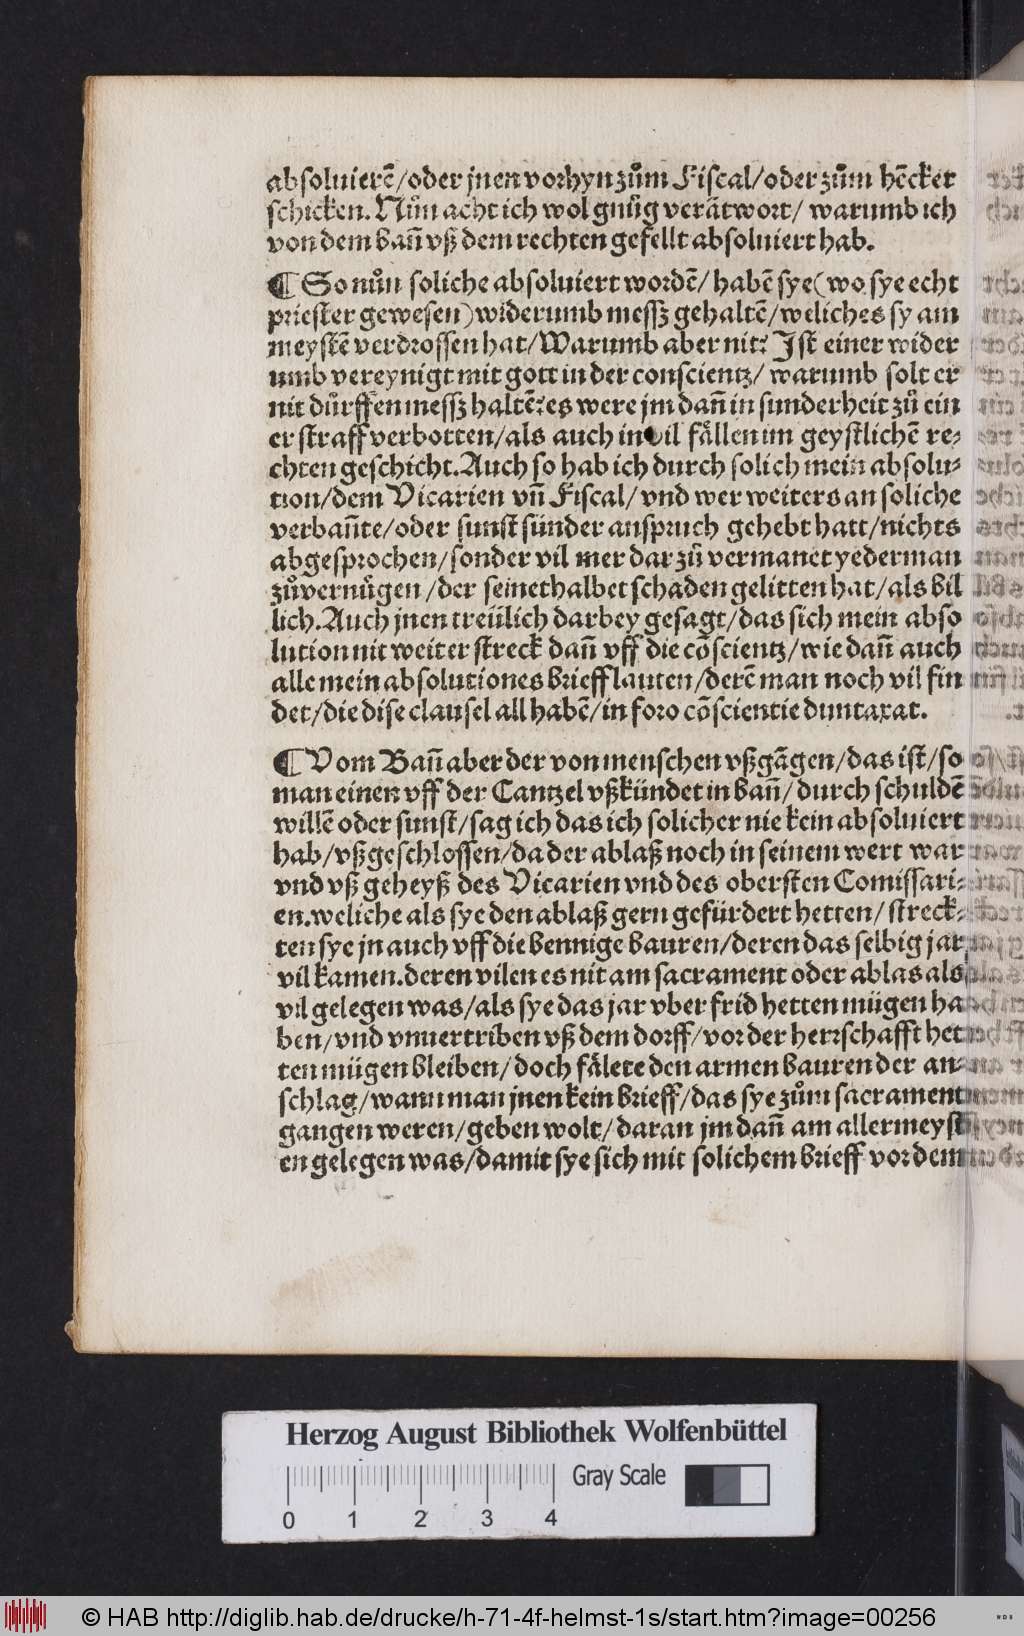 absoluierē/oder jnen vorhyn zům Fiscal/oder zům hēcker
schicken. Nůn acht ich wol gnůg verātwort/ warumb ich
von dem bañ vß dem rechten gefellt absoluiert hab.
¶ So nůn soliche absoluiert wordē/ habē sye (wo sye echt
priester gewesen) widerumb messz gehaltē/weliches sy am
meystē verdrossen hat/Warumb aber nit? Ist einer wider
umb vereynigt mit gott in der conscientz/ warumb solt er
nit důrffen messz haltē? es were jm dañ in sunderheit zů ein
er straff verbotten/als auch in vil fällen im geystlichē re-
chten geschicht. Auch so hab ich durch solich mein absolu-
tion/dem Vicarien vñ Fiscal/ vnd wer weiters an soliche
verbañte/oder sunst sünder anspruch gehebt hatt/nichts
abgesprochen/sonder vil mer dar zů vermanet yederman
zůvernügen /der seinethalbet schaden gelitten hat/als bil
lich. Auch jnen treülich darbey gesagt/das sich mein abso
lution nit weiter streck dañ vff die cōscientz/wie dañ auch
alle mein absolutiones brieff lauten/derē man noch vil fin
det/die dise clausel all habē/in foro cōscientie duntaxat.
¶ Vom Bañ aber der von menschen vßgāgen/das ist/so
man einen vff der Cantzel vßkündet in bañ/ durch schuldē
willē oder sunst/sag ich das ich solicher nie kein absoluiert
hab/vßgeschlossen/da der ablaß noch in seinem wert war
vnd vß geheyß des Vicarien vnd des obersten Comissari-
en. weliche als sye den ablaß gern gefürdert hetten/ streck-
ten sye jn auch vff die bennige bauren/deren das selbig jar
vil kamen. deren vilen es nit am sacrament oder ablas als
vil gelegen was/als sye das jar vber frid hetten mügen ha
ben/vnd vnuertriben vß dem dorff/vor der herrschafft het
ten mügen bleiben/doch fälete den armen bauren der an-
schlag/wann man jnen kein brieff/das sye zům sacrament
gangen weren/geben wolt/daran jm dañ am allermeyst
en gelegen was/damit sye sich mit solichem brieff vor dem
Herzog August Bibliothek Wolfenbüttel
Gray Scale
0 1 2 3 4
© HAB http://diglib.hab.de/drucke/h-71-4f-helmst-1s/start.htm?image=00256